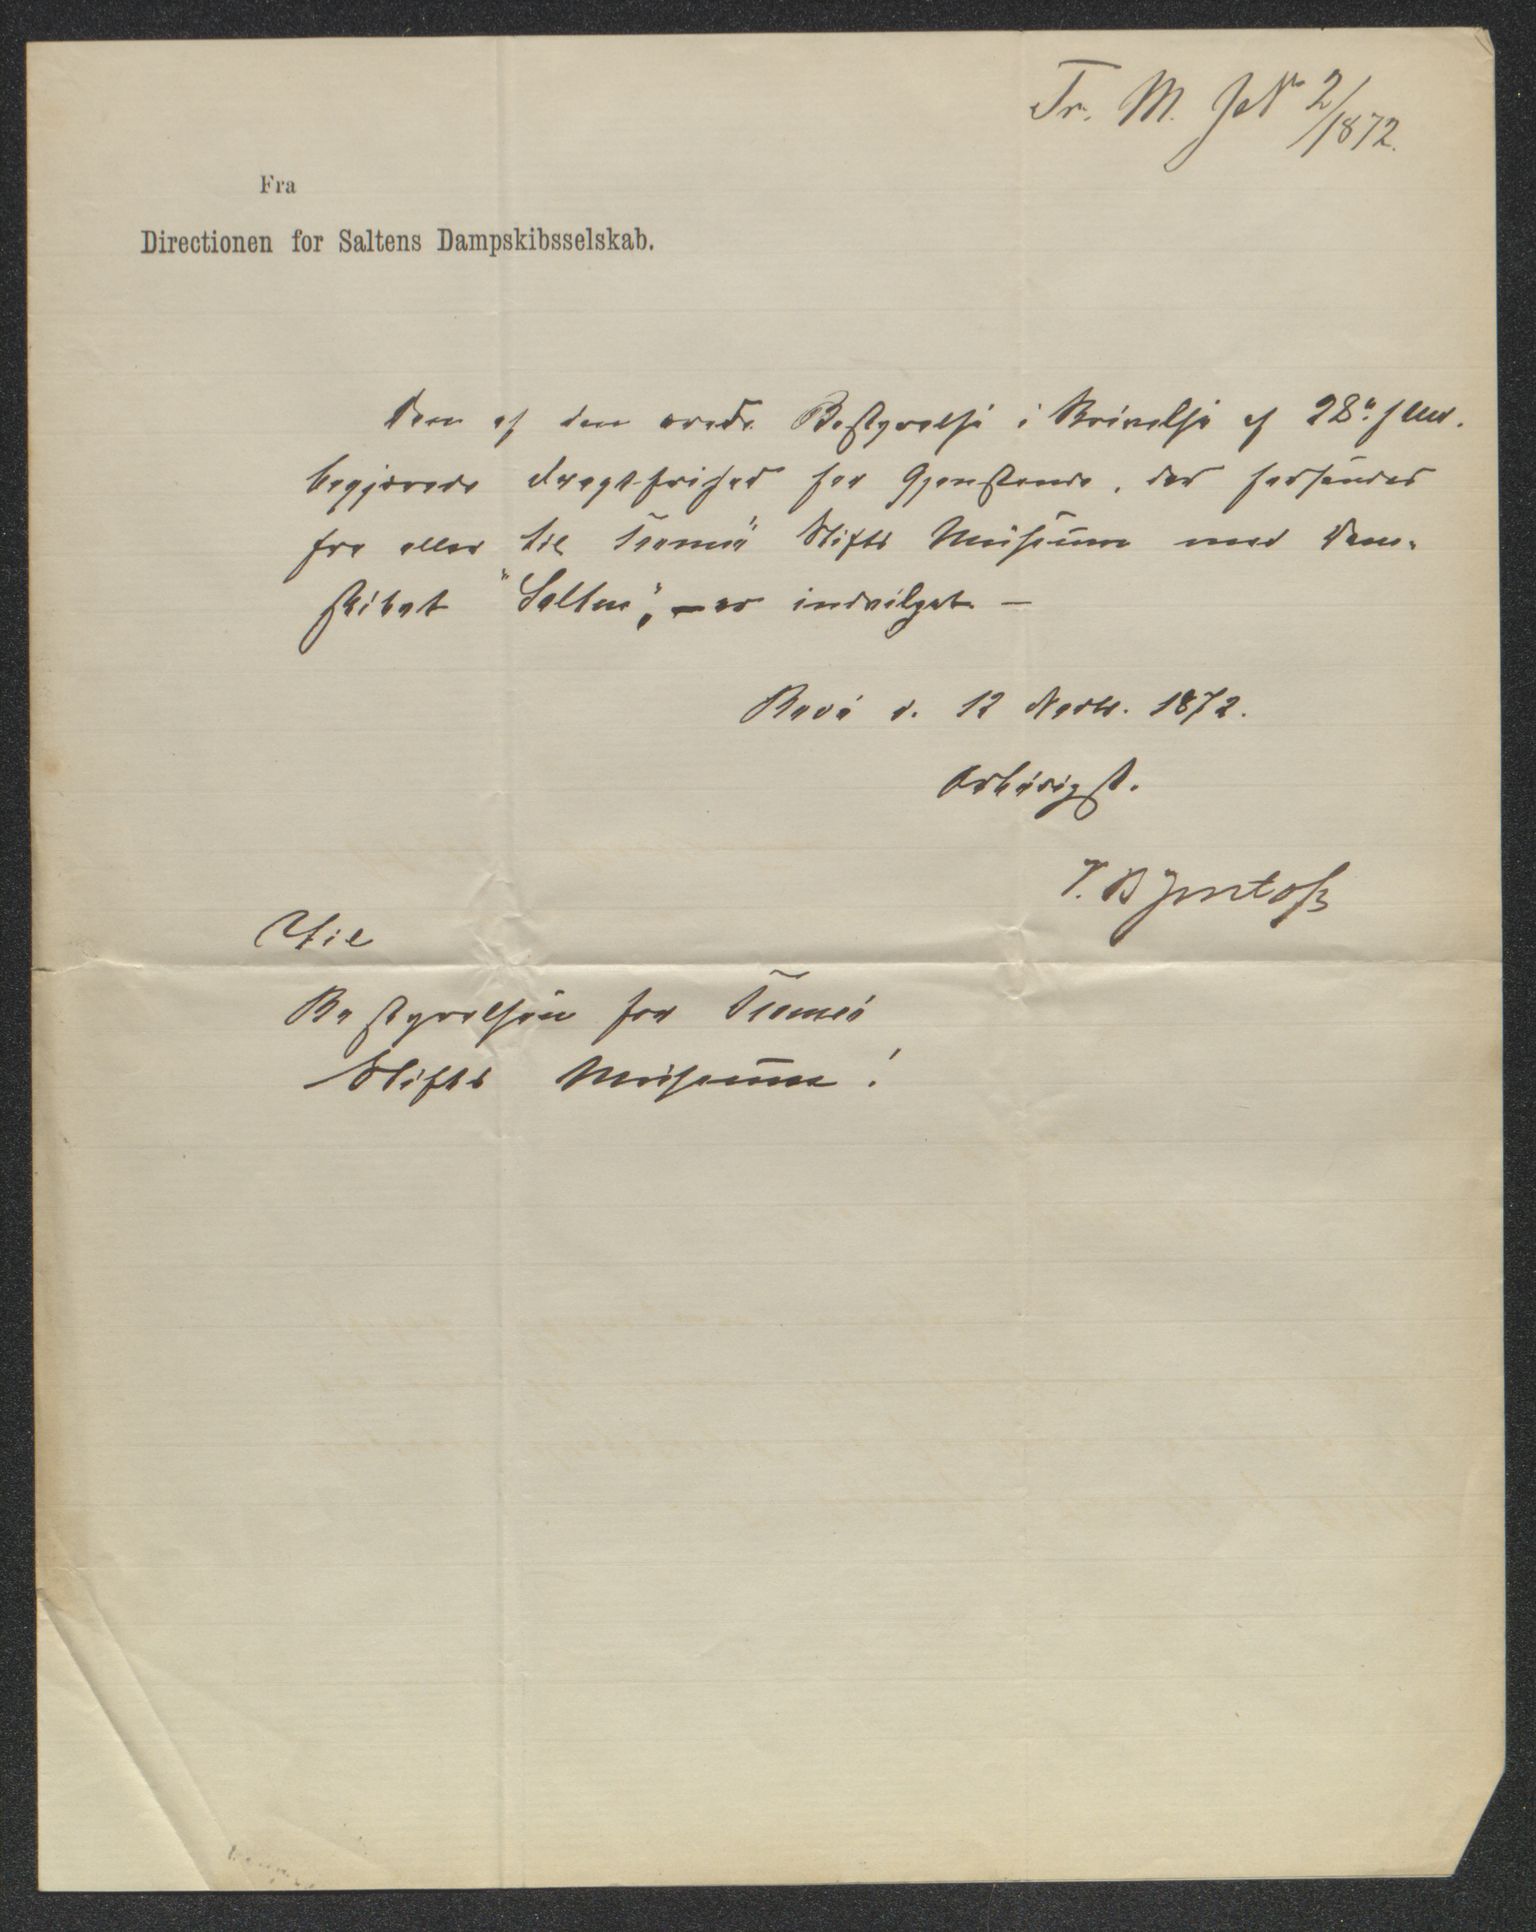 Tr. M. J№ 2/1872.
Fra
Directionen for Saltens Dampskibsselskab.
Den af den ærede Bestyrelse i Skrivelse af 28de f. Md.
begjærede Fragtfrihed for Gjenstande, der forsendes
fra eller til Tromsö Stifts Museum med Dam-
skibet "Salten", – er indvilget. –
Bodö d. 12 Novbr. 1872.
Ærbödigst.
Til
Bestyrelsen for Tromsö
Stifts Museum!